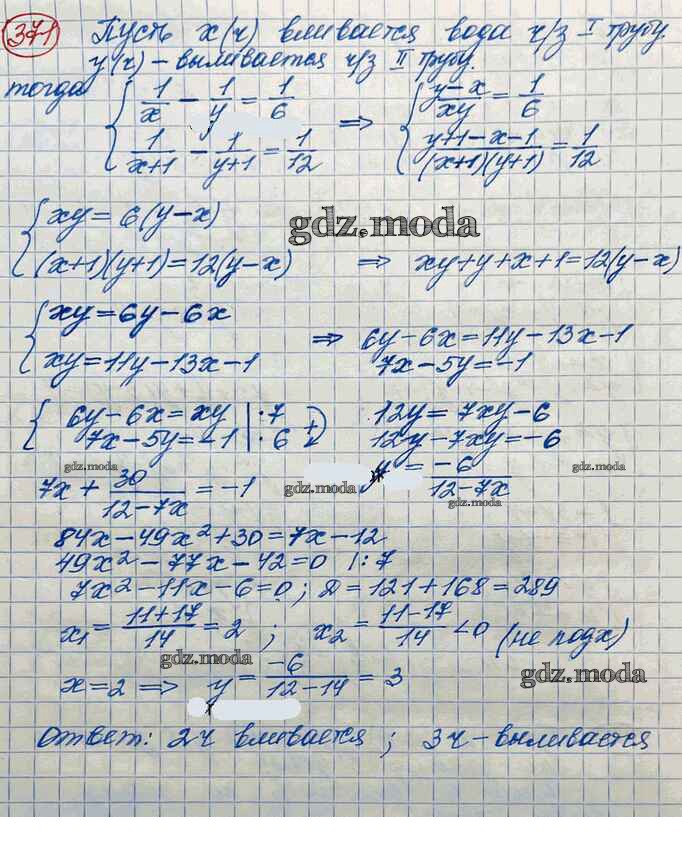 371 Пусть x(ч) вливается вода ч/з I трубу
y(ч) - выливается ч/з II трубу.
тогда { 1/x - 1/y = 1/6 ⇒ { (y-x)/xy = 1/6
{ 1/(x+1) - 1/(y+1) = 1/12 { (y+1-x-1)/((x+1)(y+1)) = 1/12
{ xy = 6(y-x)
gdz.moda
{ (x+1)(y+1) = 12(y-x) ⇒ xy+y+x+1 = 12(y-x)
{ xy = 6y-6x
{ xy = 11y-13x-1 ⇒ 6y-6x = 11y-13x-1
7x-5y = -1
{ 6y-6x = xy | ·7 12y = 7xy-6
{ 7x-5y = -1 | ·6 + 12y-7xy = -6
gdz.moda gdz.moda
7x + 30/(12-7x) = -1 gdz.moda y = -6/(12-7x)
gdz.moda
84x-49x²+30 = 7x-12
49x²-77x-42=0 |:7
7x²-11x-6=0; D=121+168=289
x₁ = (11+17)/14 = 2; x₂ = (11-17)/14 <0 (не подх)
gdz.moda
x=2 ⇒ y = -6/(12-14) = 3 gdz.moda
Ответ: 2ч вливается; 3ч-выливается